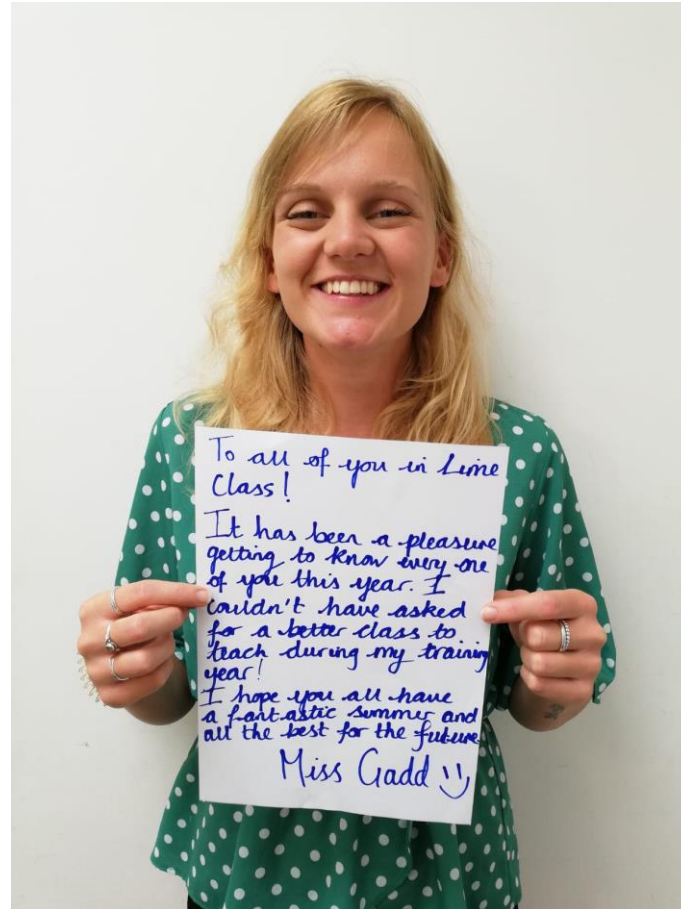 To all of you in Lime
Class!
It has been a pleasure
getting to know every one
of you this year. I
couldn't have asked
for a better class to
teach during my training
year!
I hope you all have
a fantastic summer and
all the best for the future
Miss Gadd :)